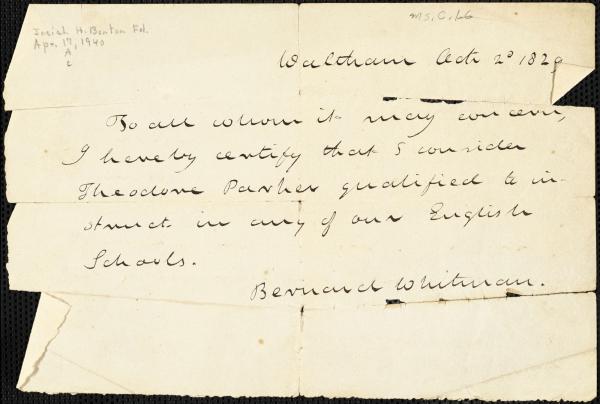 Josiah H. Benton Fd.
Apr. 17, 1940
A
c
Ms. C. 1.6
Waltham Oct. 2d 1829
To all whom it may concern,
I hereby certify that I consider
Theodore Parker qualified to in-
struct in any of our English
Schools.
Bernard Whitman.